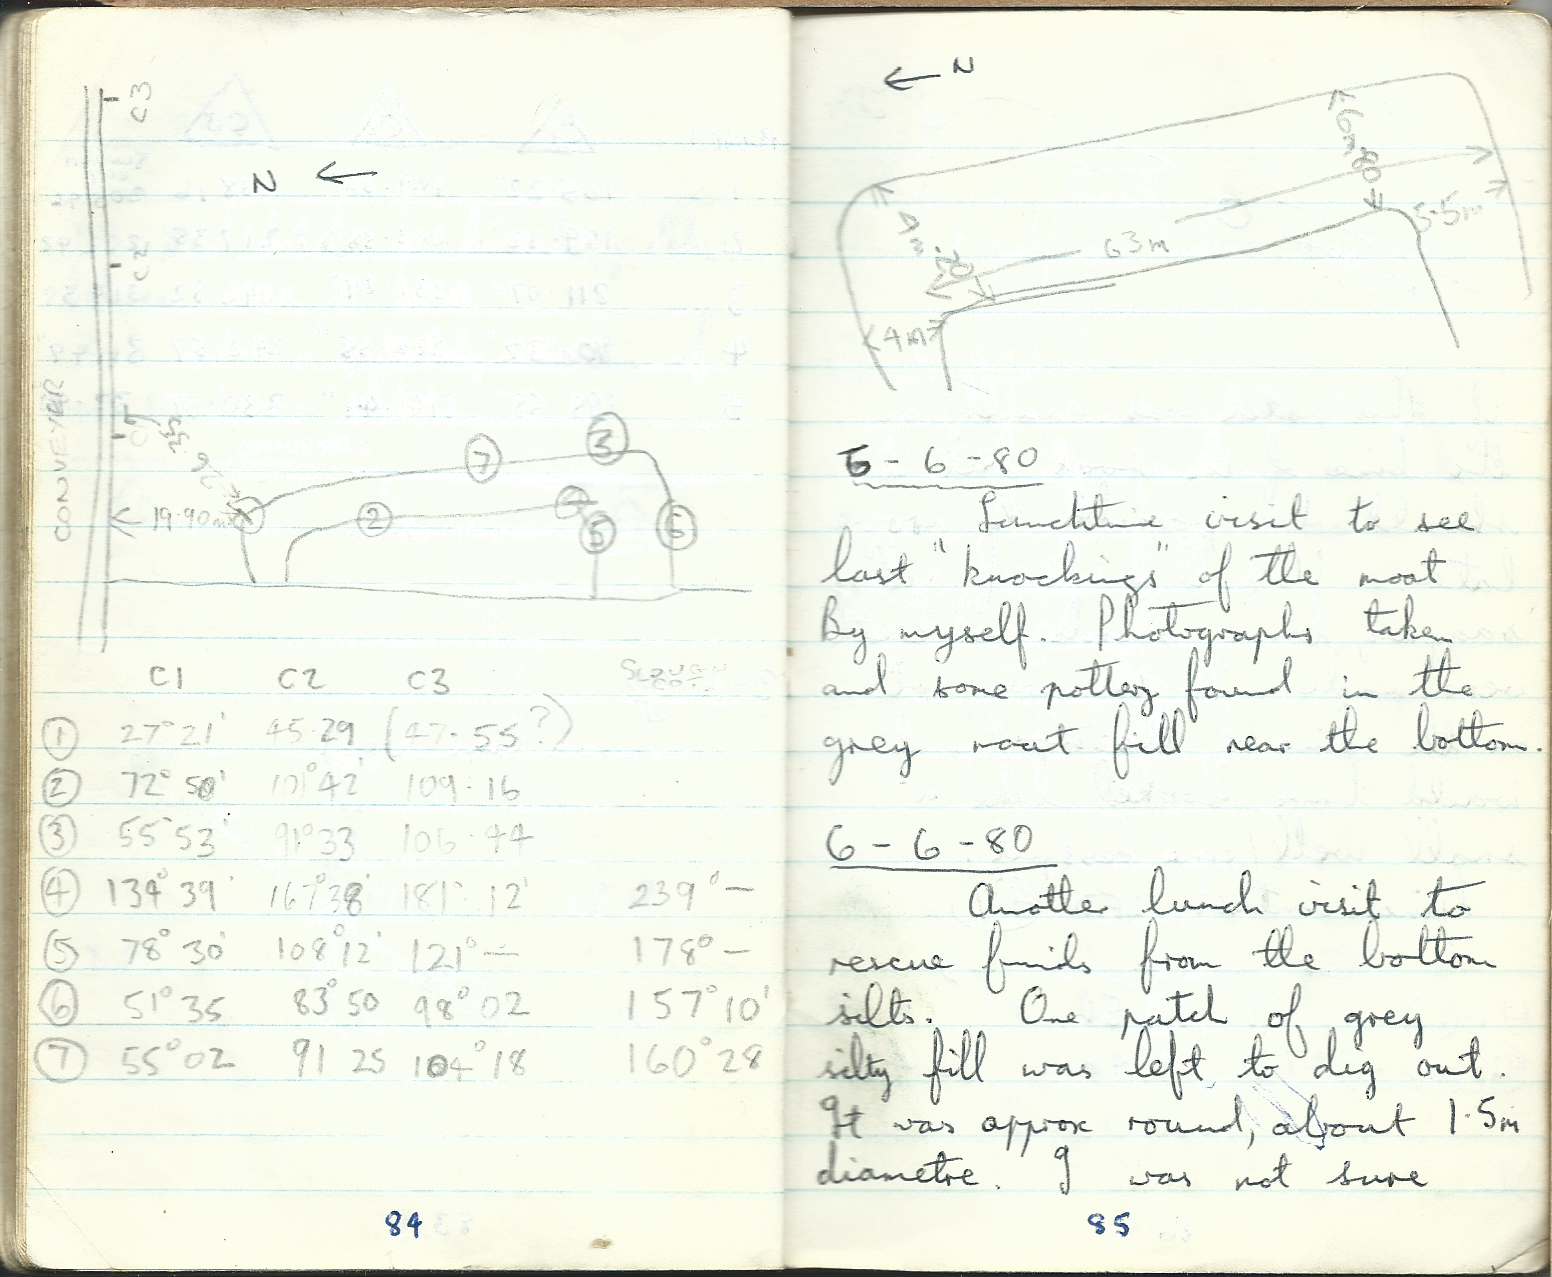 C3
N
C2
CONVEYER
19.90m
7
3
2
4
5
6
C1 C2 C3
1 27°21' 45.29 (47.55?)
2 72°50' 101°42' 109.16
3 55°53' 91°33 106.44
4 134°39' 167°38' 181° 12' 239°—
5 78°30' 108°12' 121°— 178°—
6 51°35 83°50 98°02 157°10'
7 55°02 91 25 104°18 160°28
84
N
6m.80
5.5m
4m.20
63m
4m
5-6-80
Lunchtime visit to see
last "knockings" of the moat
By myself. Photographs taken
and some pottery found in the
grey moat fill near the bottom.
6-6-80
Another lunch visit to
rescue finds from the bottom
silts. One patch of grey
silty fill was left to dig out.
It was approx round, about 1.5m
diametre. I was not sure
85